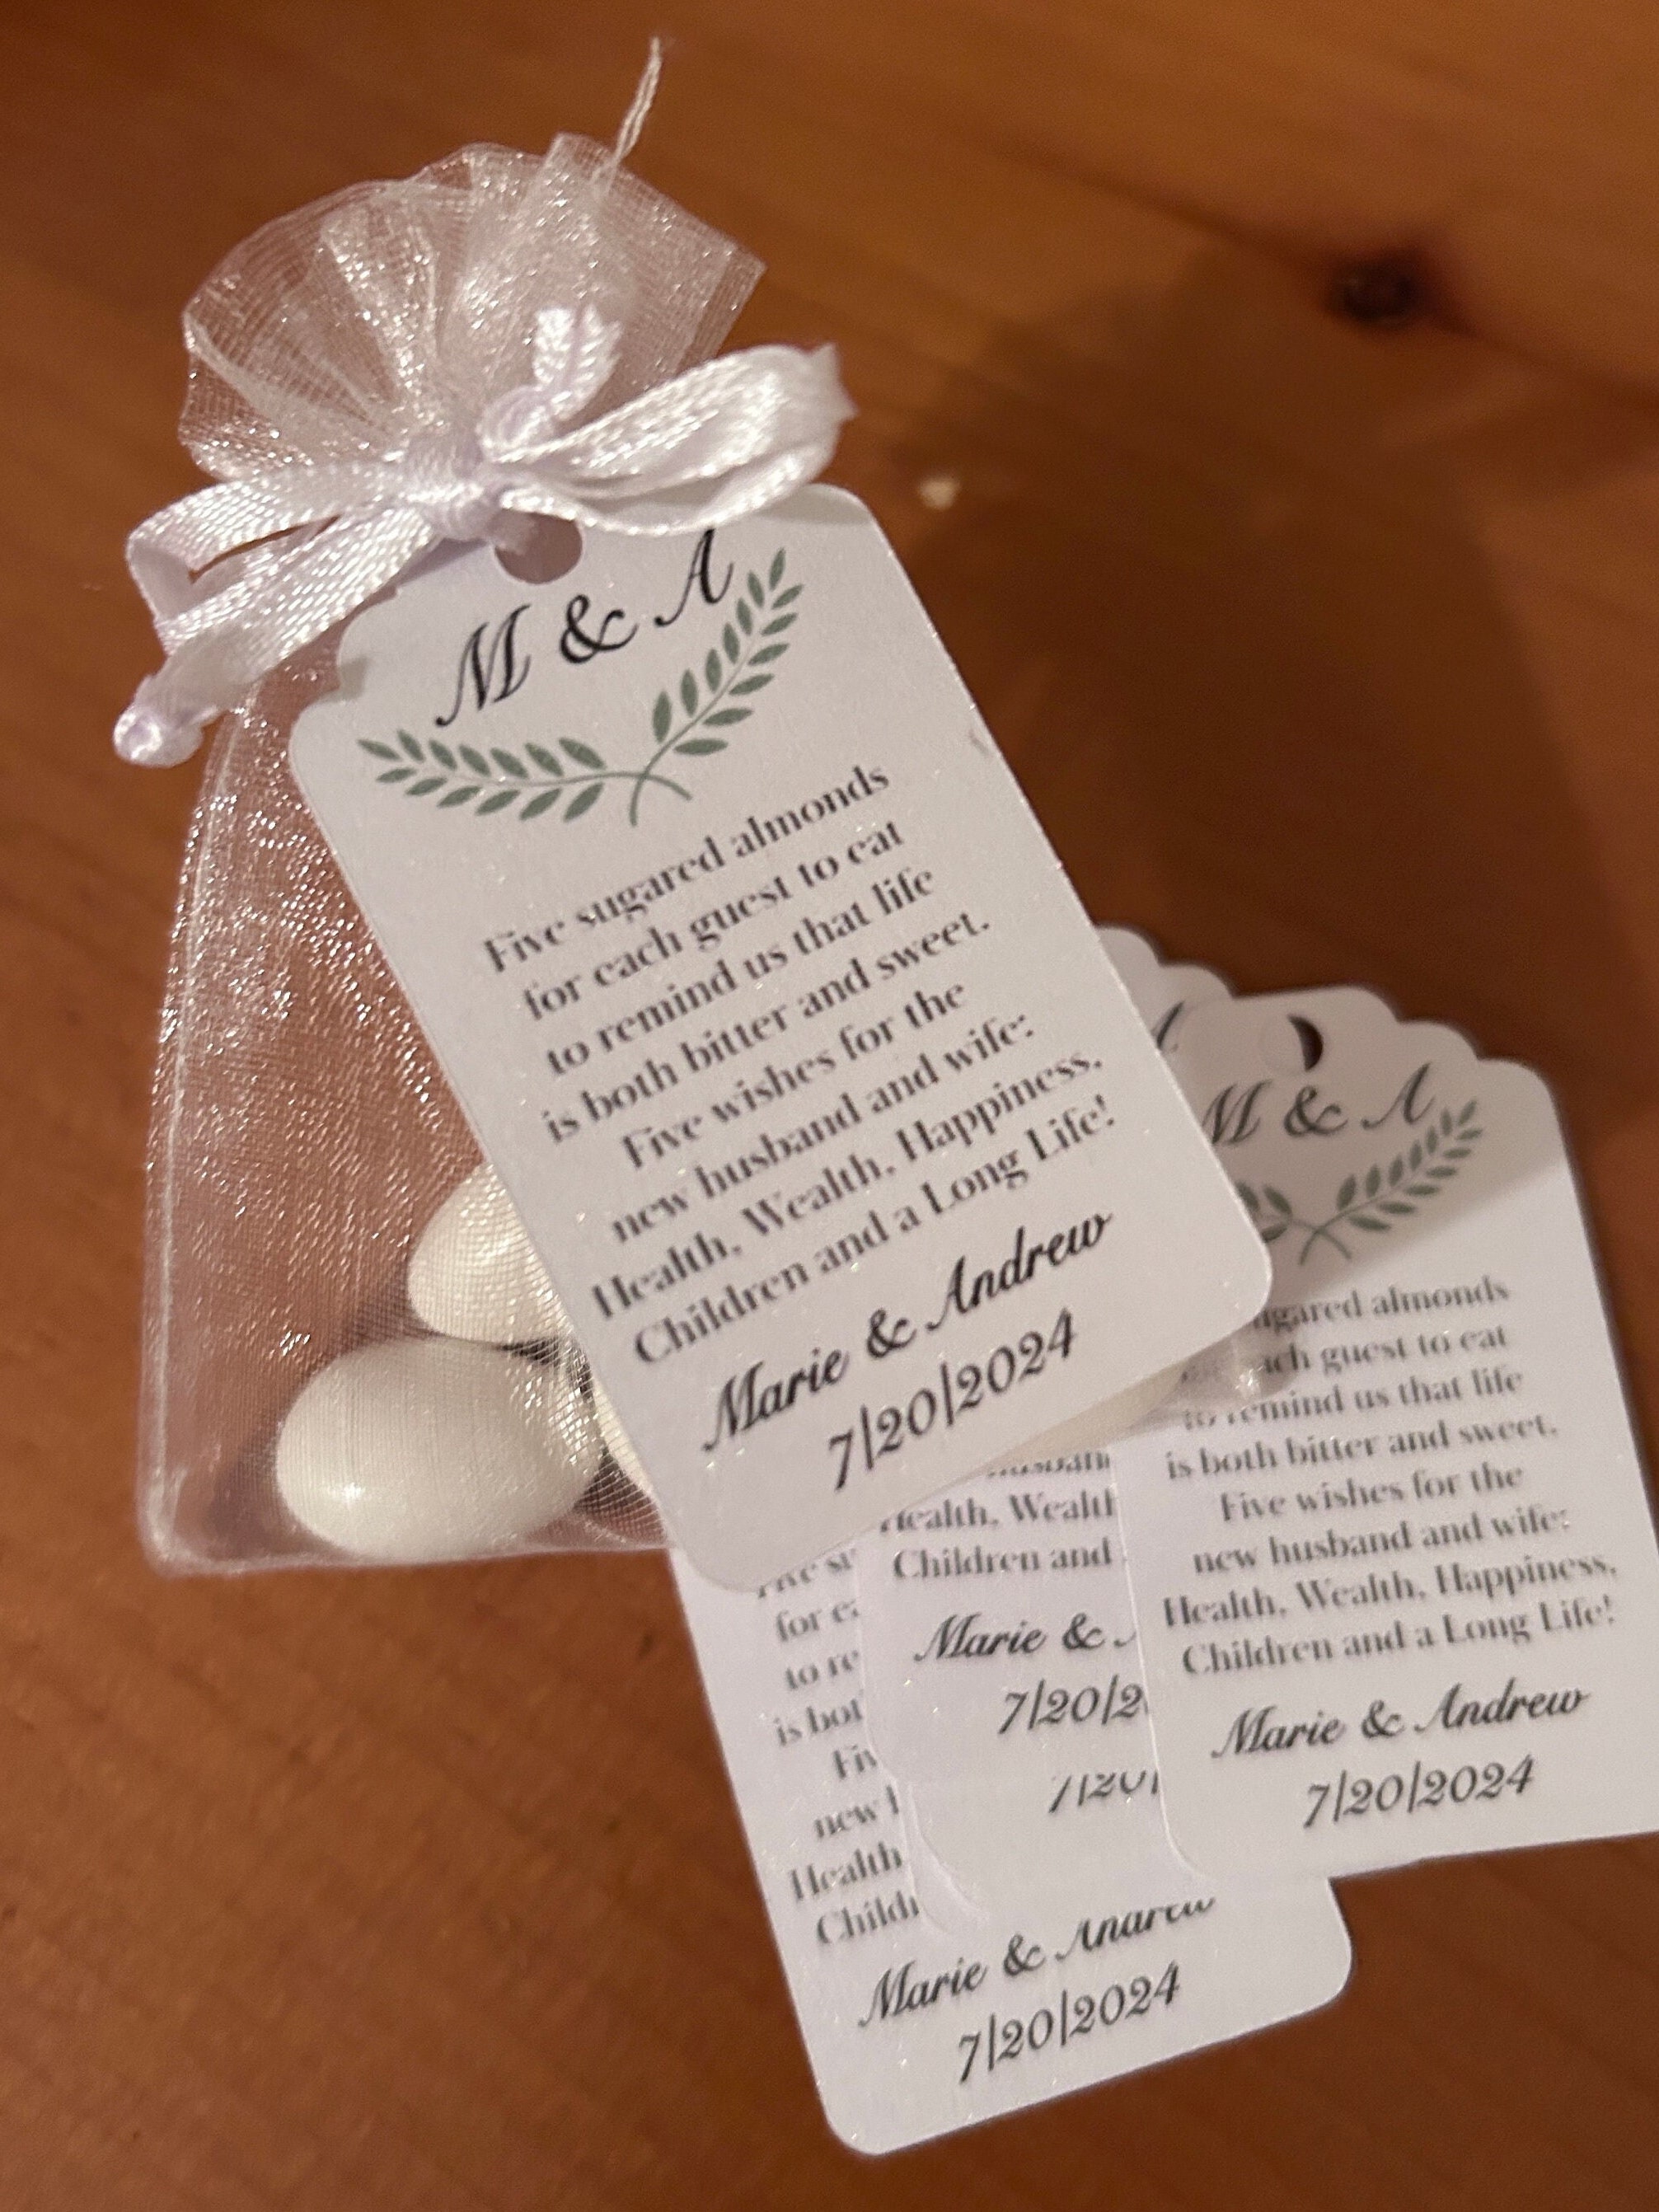 M & A
Five sugared almonds
for each guest to eat
to remind us that life
is both bitter and sweet.
Five wishes for the
new husband and wife:
Health, Wealth, Happiness,
Children and a Long Life!
Marie & Andrew
7/20/2024
M & A
almonds
guest to eat
to remind us that life
is both bitter and sweet.
Five wishes for the
new husband and wife:
Health, Wealth, Happiness,
Children and a Long Life!
Marie & Andrew
7/20/2024
Children and
Marie &
for
to
Health
Marie & Andrew
7/20/2024